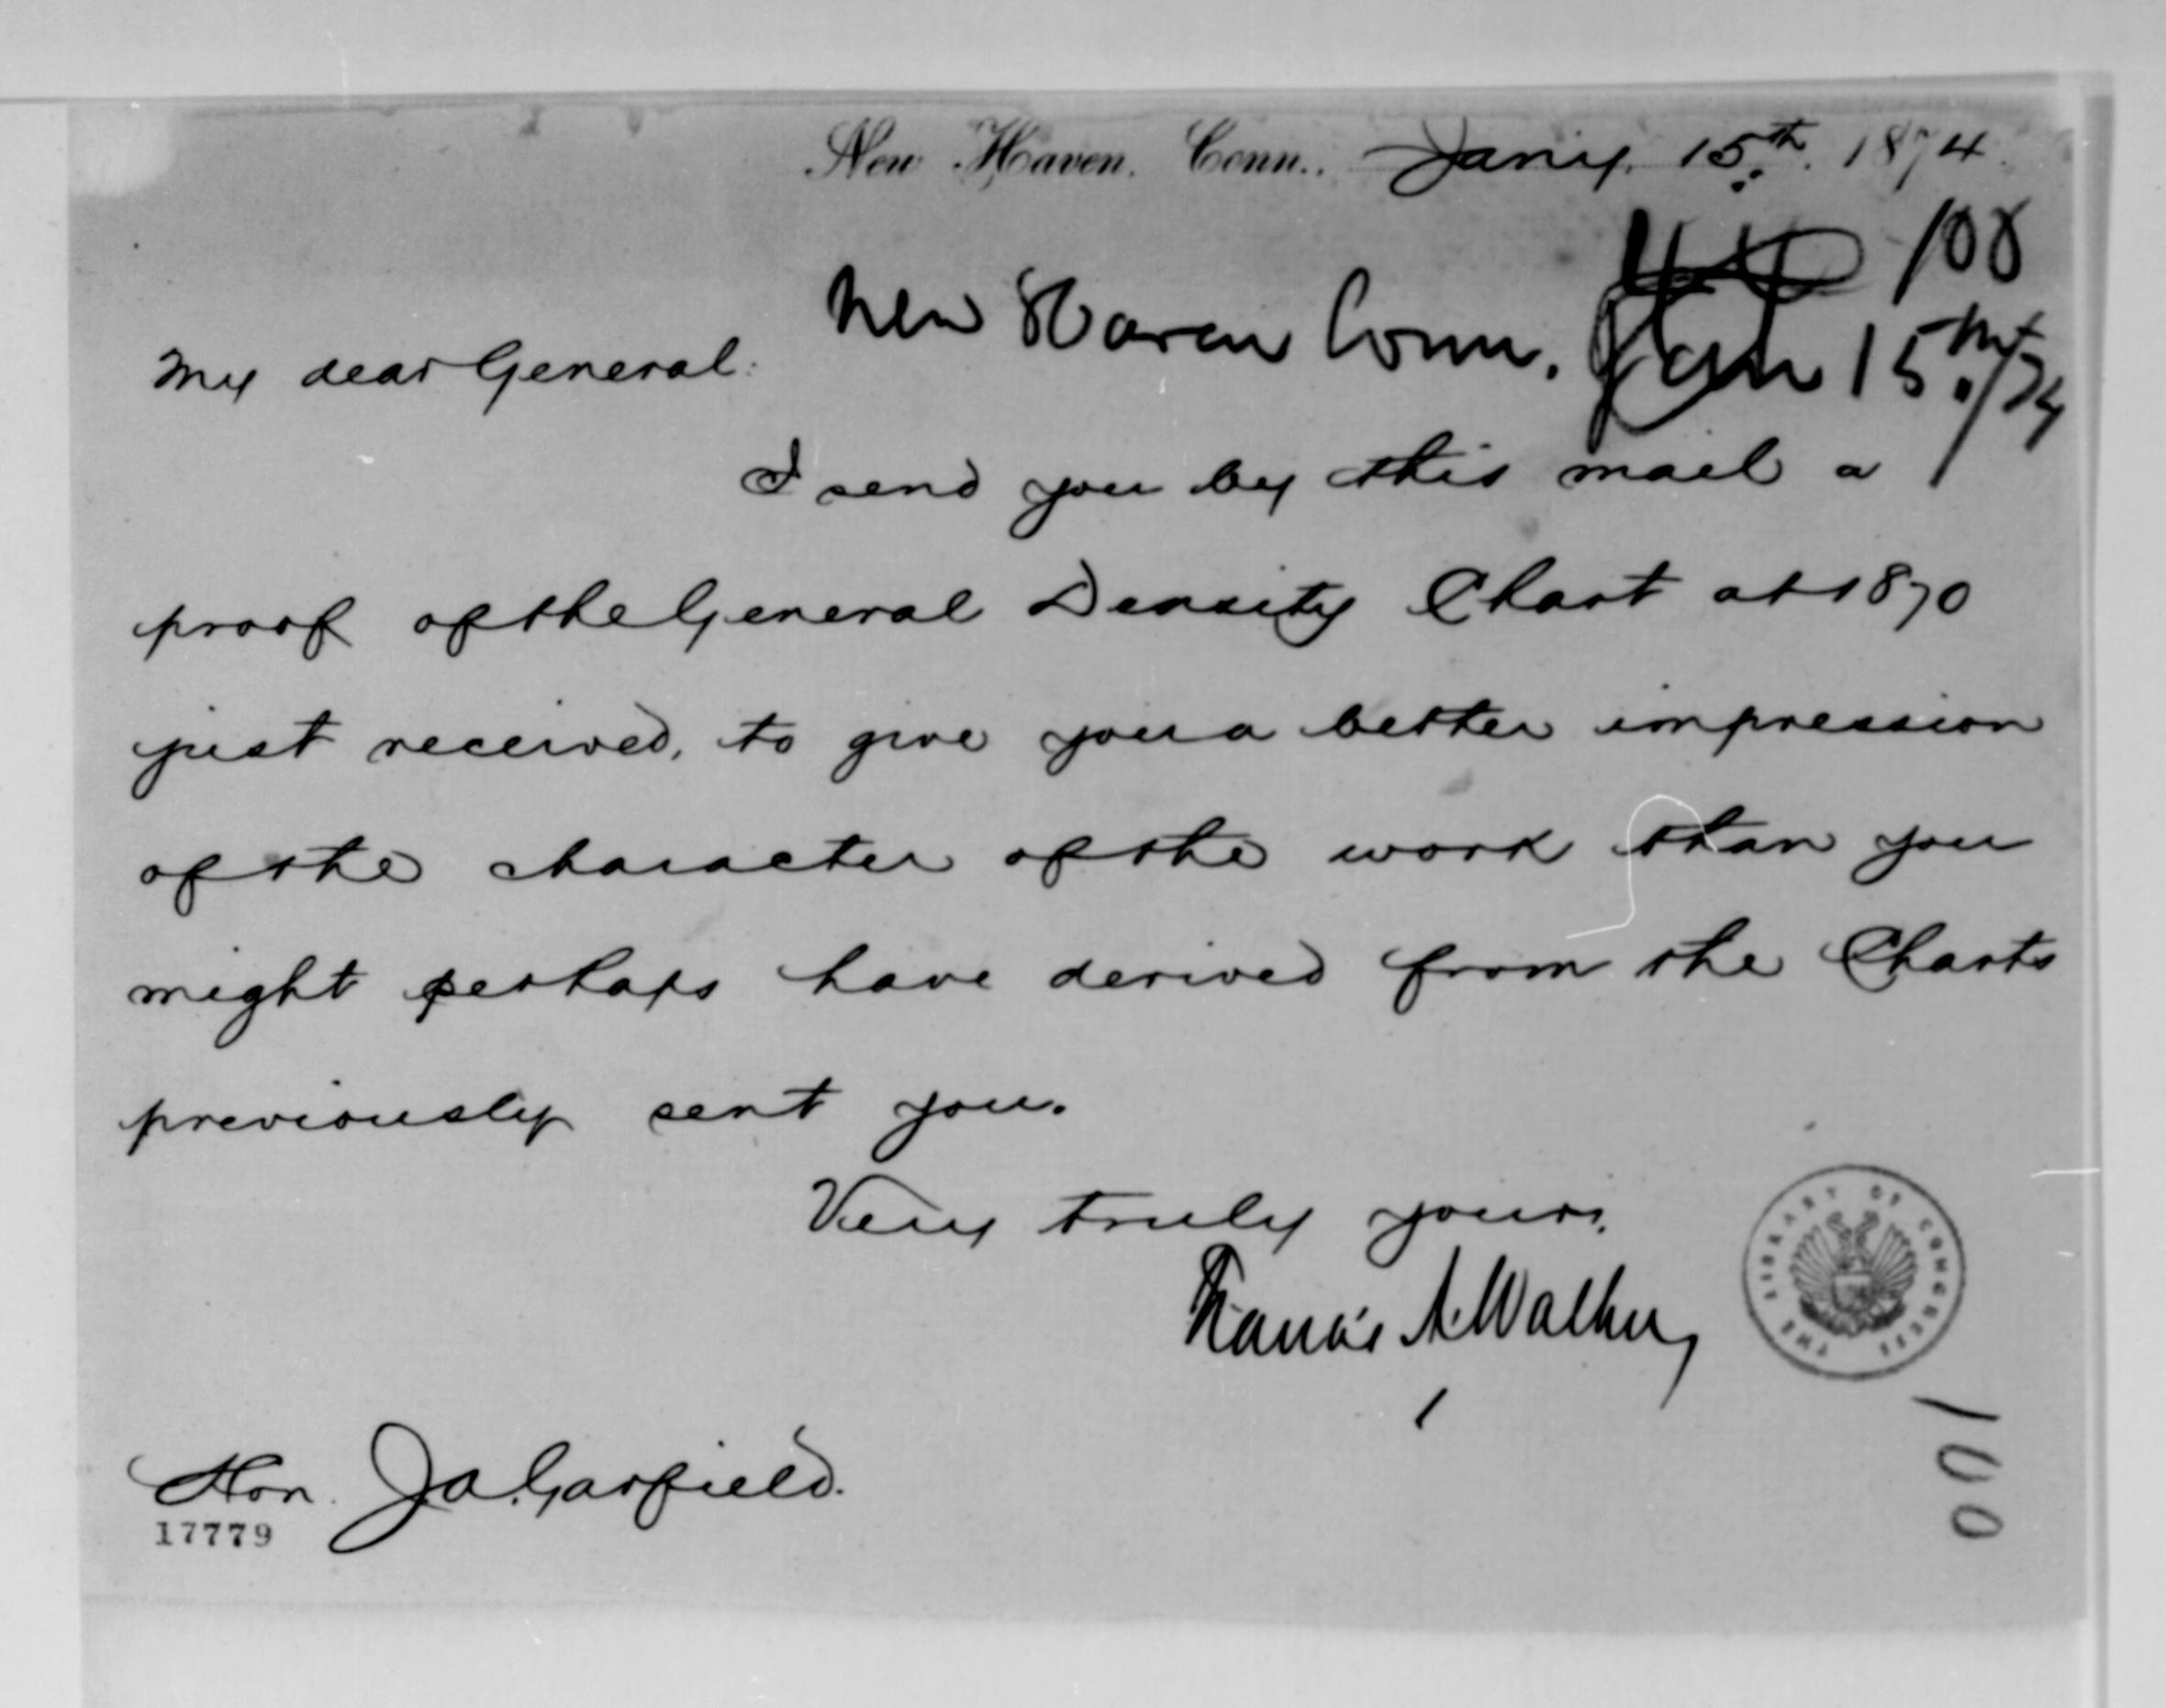 New Haven, Conn., Jan'y. 15th. 1874
100
New Haven Conn. Jan 15th/74
My dear General:
I send you by this mail a
proof of the General Density Chart at 1870
just received, to give you a better impression
of the character of the work than you
might perhaps have derived from the Charts
previously sent you.
Very truly yours,
Francis A. Walker
Hon. J. A. Garfield.
17779
THE LIBRARY OF CONGRESS
100